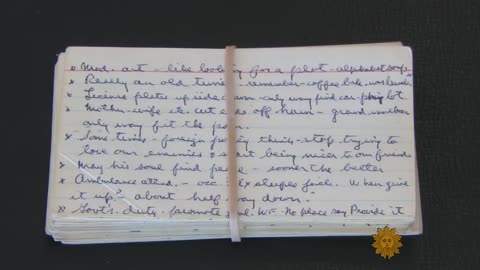 * Mod. art - like looking for a plot - alphabet soup
* Rarely an old time - remember - coffee
* License plates upside down - only way find car - lot
* Mother - wife etc. cut ends off ham - grand mother
only way fit the pan.
* Some times - foreign policy thing - stop trying to
love our enemies & start being nicer to our friends
* May his soul find peace - sooner the better
* Ambulance attend. - occ. sleeper jack. When give
it up? about half way down.
* Govt's. duty - promote W.F. No place say Provide it